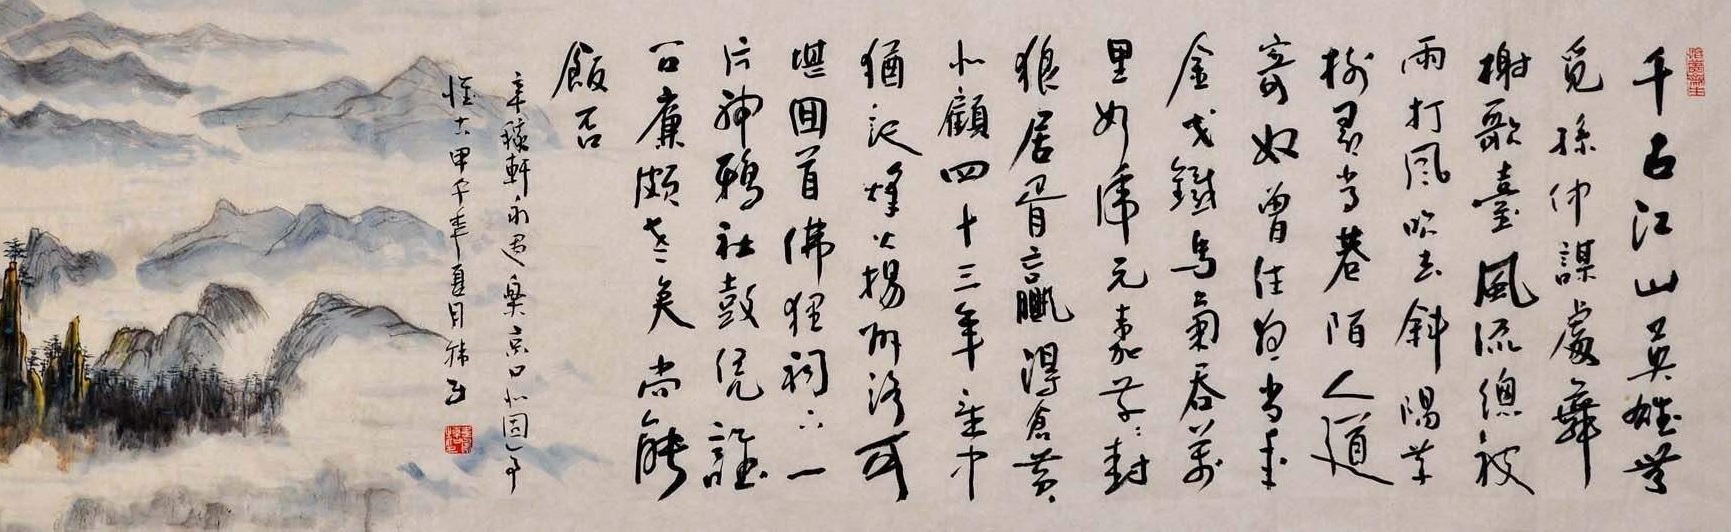 千古江山英雄無
覓孫仲謀處舞
榭歌臺風流總被
雨打風吹去斜陽草
樹尋常巷陌人道
寄奴曾住想當年
金戈鐵馬氣吞萬
里如虎元嘉草〻封
狼居胥贏得倉黃
北顧四十三年望中
猶記烽火揚州路可
堪回首佛狸祠下一
片神鴉社鼓憑誰
問廉頗老矣尚能
飯否
辛稼軒永遇樂京口北固亭
懷古甲午年夏月